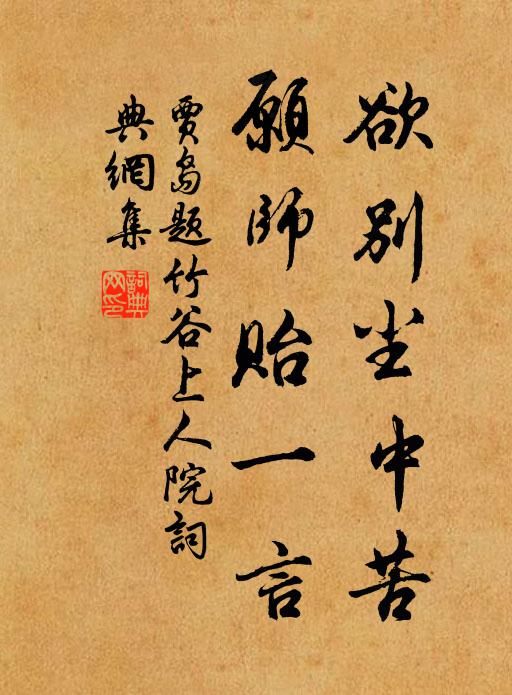 欲别尘中苦
願師貽一言
賈島題竹谷上人院詞
典網集
詞典网印